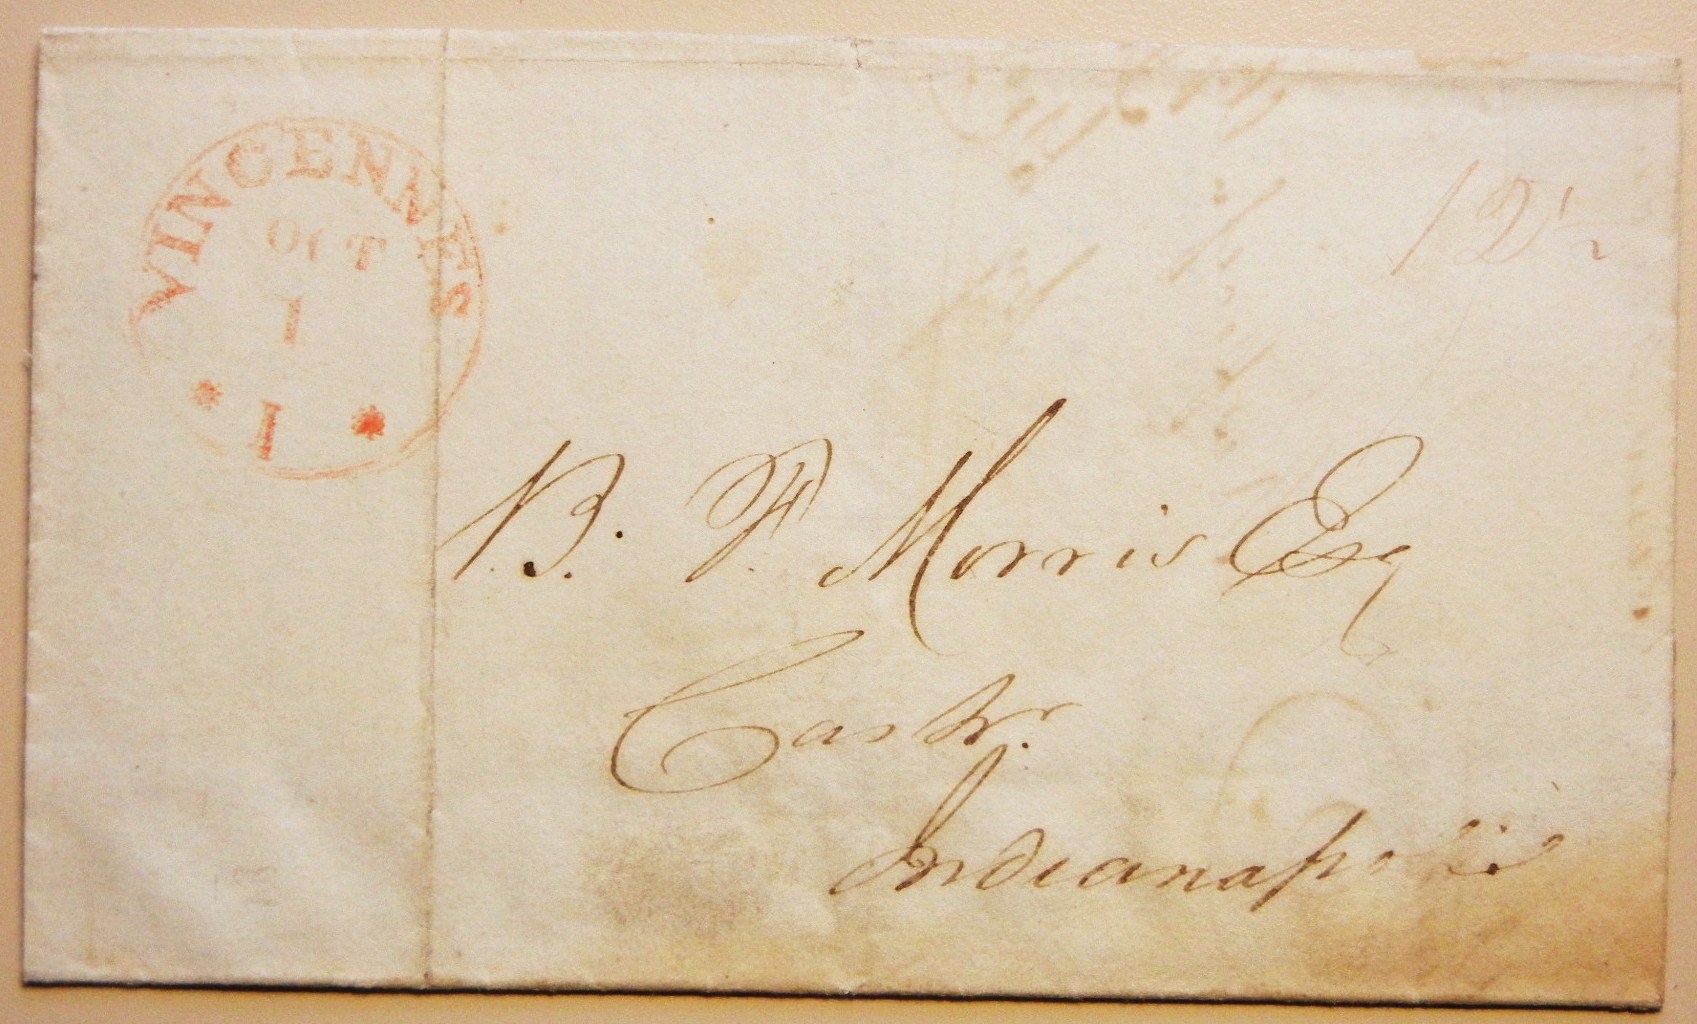 VINCENNES
OCT
1
* I *
12½
B. F. Morris Esq
Cashr.
Indianapolis